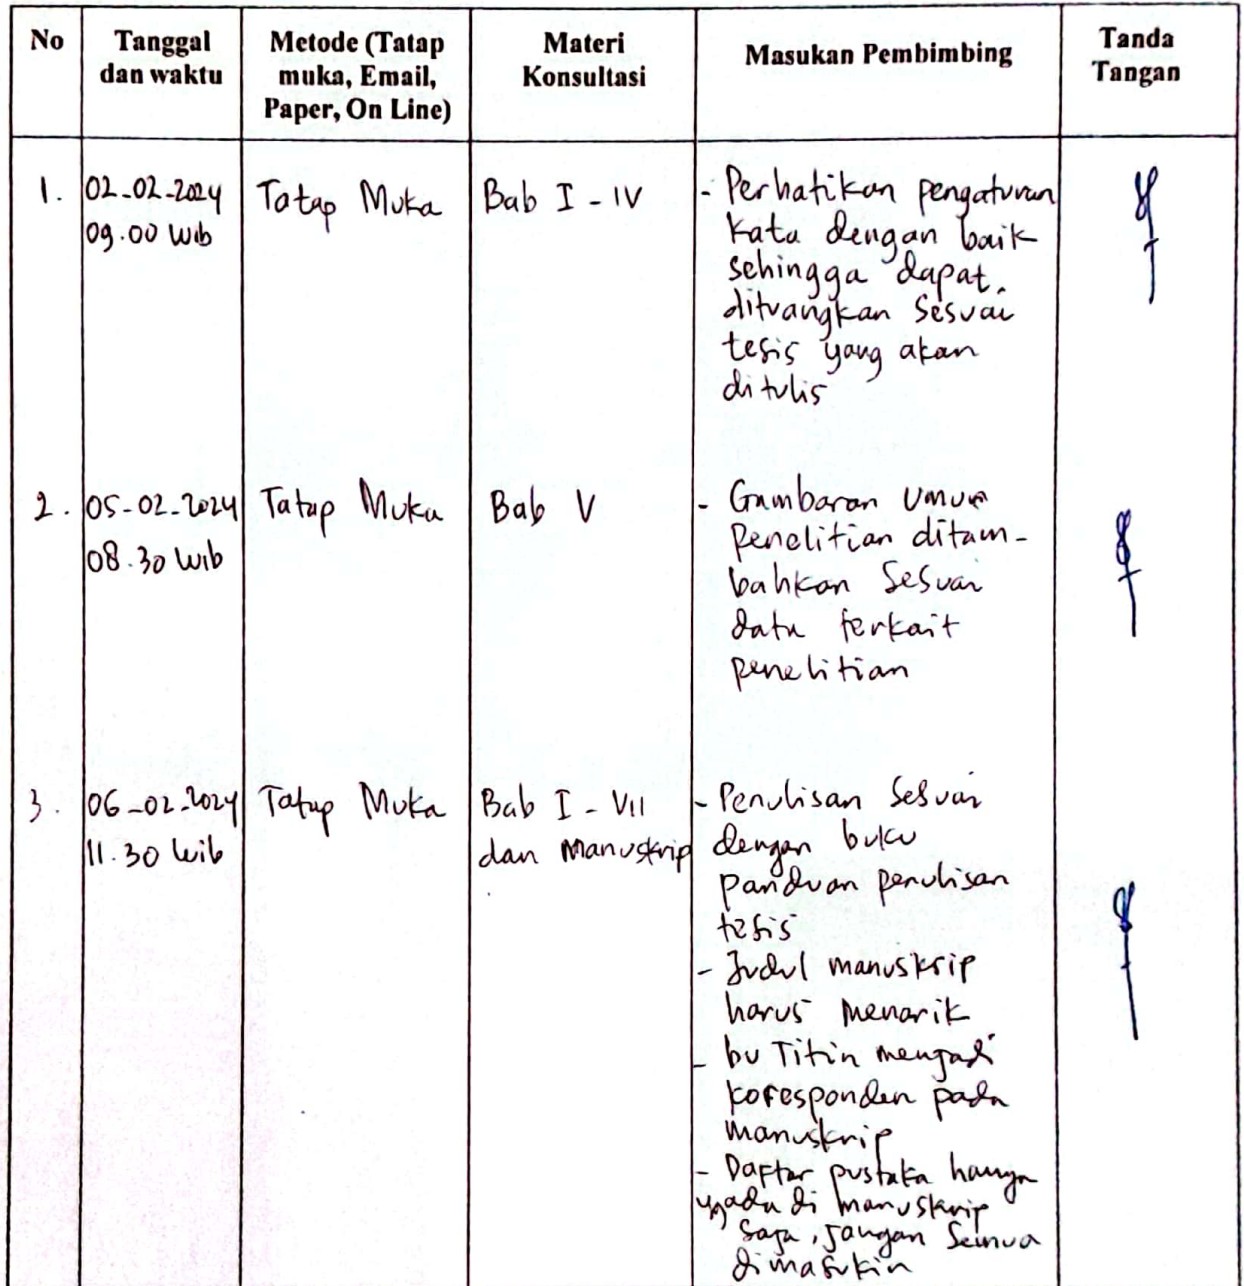 No
Tanggal
dan waktu
Metode (Tatap
muka, Email,
Paper, On Line)
Materi
Konsultasi
Masukan Pembimbing
Tanda
Tangan
1.
02-02-2024
09.00 Wib
Tatap Muka
Bab I - IV
- Perhatikan pengaturan
kata dengan baik
sehingga dapat
dituangkan sesuai
tesis yang akan
ditulis
2.
05-02-2024
08.30 Wib
Tatap Muka
Bab V
- Gambaran Umum
Penelitian ditam-
bahkan sesuai
data terkait
penelitian
3.
06-02-2024
11.30 Wib
Tatap Muka
Bab I - VII
dan Manuskrip
- Penulisan sesuai
dengan buku
panduan penulisan
tesis
- Judul manuskrip
harus menarik
- bu Titin menjadi
koresponden pada
manuskrip
- Daftar pustaka hanya
yg ada di manuskrip
saja, jangan semua
dimasukin